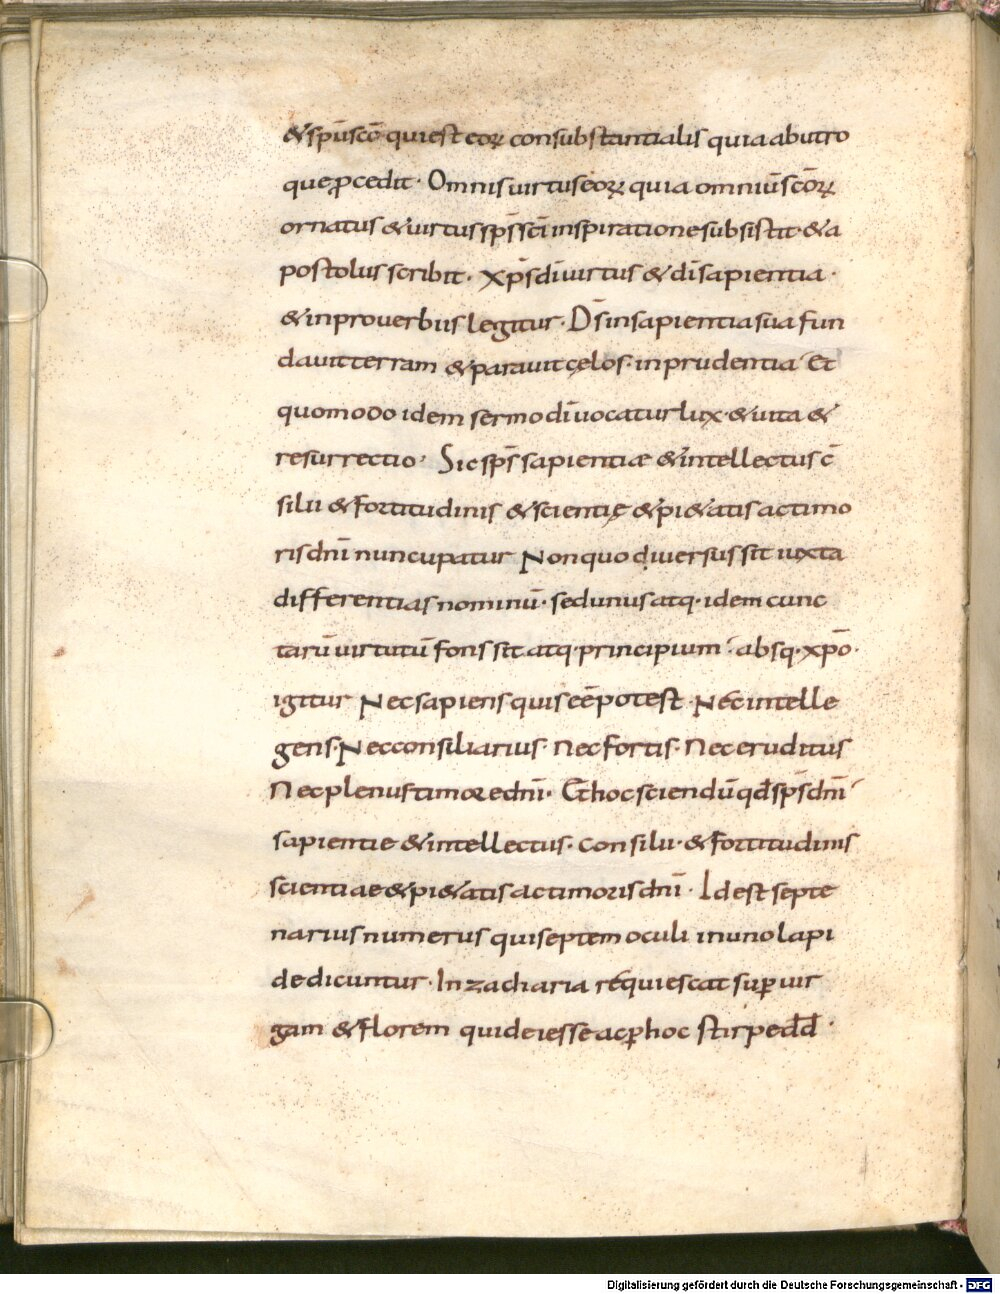 & sp̄usc̄o qui est eoꝝ consubstantialis quia ab utro
que ꝓcedit · Omnis uirtus eoꝝ quia omniū sc̄oꝝ
ornatus & uirtus sp̄s sc̄i inspiratione subsistit · & a
postolus scribit · xp̄s dī uirtus & dī sapientia ·
& in prouerbiis legitur · Dn̄s in sapientia sua fun
dauit terram & parauit cęlos · in prudentia Et
quomodo idem sermo dī uocatur lux · & uita &
resurrectio · Sic sp̄s sapientiæ & intellectus c̄
silii & fortitudinis & scientię & pi&atis ac timo
ris dn̄i nuncupatur Non quo diuersus sit iuxta
differentias nominū · sed unus atq · idem cunc
tarū uirtutū fons sit atq · principium · absq · xp̄o ·
igitur Nec sapiens quis eē potest · Nec intelle
gens · Nec consiliarius · nec fortis · Nec eruditus
Nec plenus timore dn̄i · Et hoc sciendū qđ sp̄s dn̄i
sapientie & intellectus · consilii · & fortitudinis
scientiae & pi&atis ac timoris dn̄i · Id est septe
narius numerus qui septem oculi in uno lapi
de dicuntur · In zacharia requiescat suꝑ uir
gam & florem qui de iesse ac ꝑ hoc stirpe dđ ·
Digitalisierung gefördert durch die Deutsche Forschungsgemeinschaft - DFG